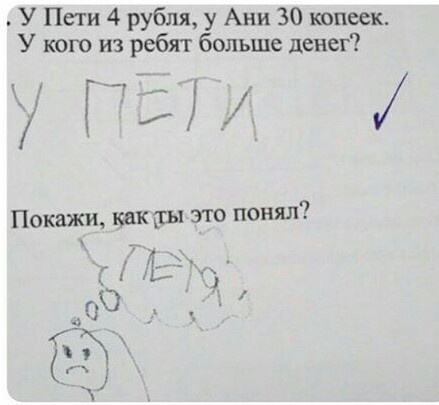 . У Пети 4 рубля, у Ани 30 копеек.
У кого из ребят больше денег?
У ПЕТИ
Покажи, как ты это понял?
ПЕТЯ